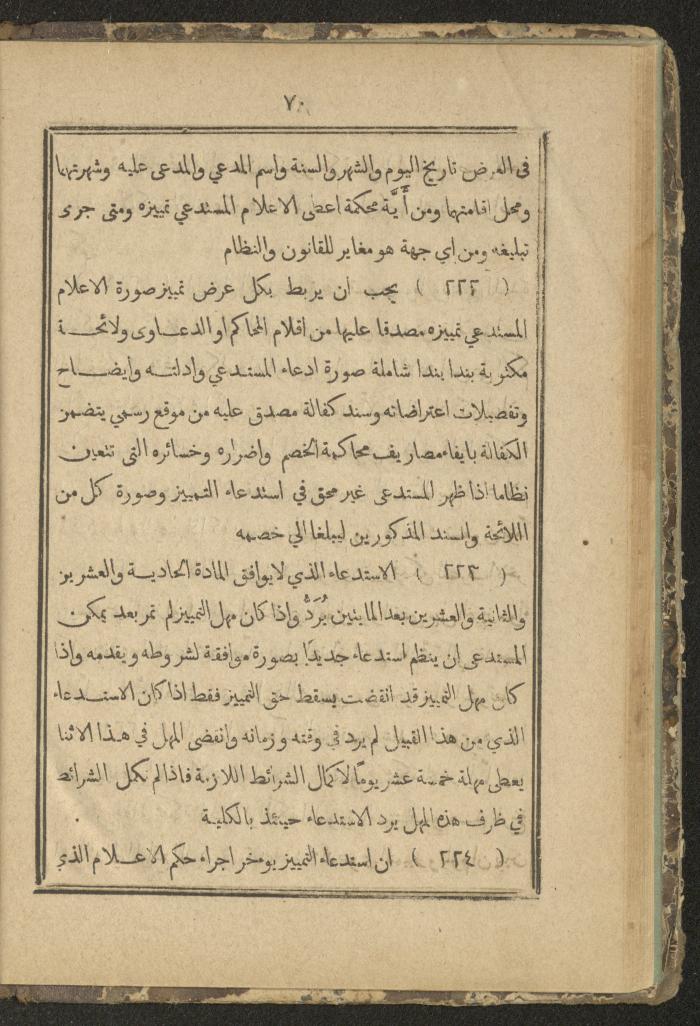 ٧٠
في العرض تاريخ اليوم والشهر والسنة واسم المدعي والمدعى عليه وشهرتهما
ومحل اقامتهما ومن أَيَّة محكمة اعطى الاعلام المستدعي تمييزه ومتى جرى
تبليغه ومن اي جهة هو مغاير للقانون والنظام
( ٢٢٢ ) يجب ان يربط بكل عرض تمييز صورة الاعلام
المستدعي تمييزه مصدقا عليها من اقلام المحاكم او الدعاوى ولائحة
مكتوبة بندا بندا شاملة صورة ادعاء المستدعي وادلته وايضاح
وتفصيلات اعتراضاته وسند كفالة مصدق عليه من موقع رسمي يتضمن
الكفالة بايفاء مصاريف محاكمة الخصم واضراره وخسائره التى تتعين
نظاما اذا ظهر المستدعى غير محق في استدعاء التمييز وصورة كل من
اللائحة والسند المذكورين ليبلغا الي خصمه
( ٢٢٣ ) الاستدعاء الذي لا يوافق المادة الحادية والعشرين
والثانية والعشرين بعد المايتين يُرَدُّ واذا كان مهل التمييز لم تمر بعد يمكن
المستدعى ان ينظم استدعاء جديدًا بصورة موافقة لشروطه ويقدمه واذا
كان مهل التمييز قد انقضت يسقط حق التمييز فقط اذا كان الاستدعاء
الذي من هذا القبيل لم يرد في وقته وزمانه وانقضى المهل في هذا الاثنا
يعطى مهلة خمسة عشر يومًا لاكمال الشرائط اللازمة فاذا لم تكمل الشرائط
في ظرف هذه المهل يرد الاستدعاء حينئذ بالكلية
( ٢٢٤ ) ان استدعاء التمييز يوخر اجراء حكم الاعلام الذي